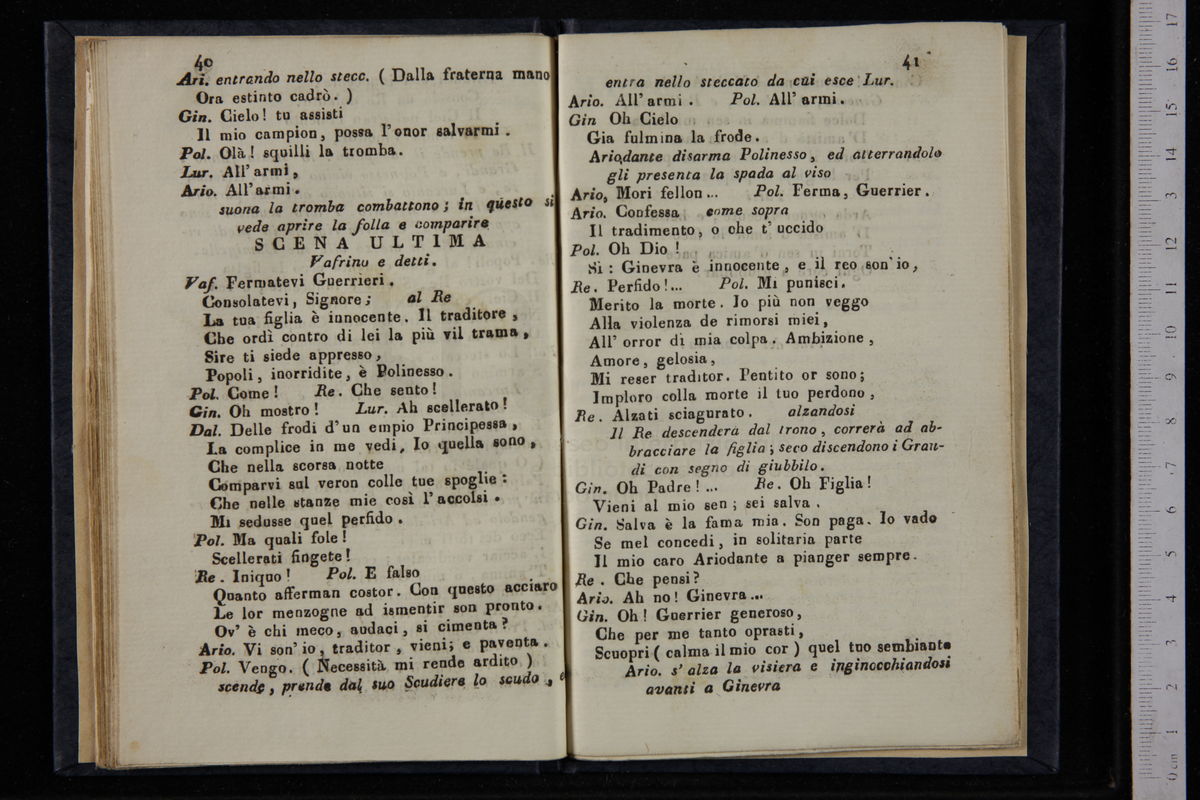 40
Ari. entrando nello stecc. ( Dalla fraterna mano
Ora estinto cadrò. )
Gin. Cielo! tu assisti
Il mio campion, possa l'onor salvarmi.
Pol. Olà! squilli la tromba.
Lur. All'armi,
Ario. All'armi.
suona la tromba combattono; in questo si
vede aprire la folla e comparire
SCENA ULTIMA
Vafrino e detti.
Vaf. Fermatevi Guerrieri.
Consolatevi, Signore; al Re
La tua figlia è innocente. Il traditore,
Che ordì contro di lei la più vil trama,
Sire ti siede appresso,
Popoli, inorridite, è Polinesso.
Pol. Come! Re. Che sento!
Gin. Oh mostro! Lur. Ah scellerato!
Dal. Delle frodi d'un empio Principessa,
La complice in me vedi, Io quella sono,
Che nella scorsa notte
Comparvi sul veron colle tue spoglie:
Che nelle stanze mie così l'accolsi.
Mi sedusse quel perfido.
Pol. Ma quali fole!
Scellerati fingete!
Re. Iniquo! Pol. E falso
Quanto afferman costor. Con questo acciaro
Le lor menzogne ad ismentir son pronto.
Ov'è chi meco, audaci, si cimenta?
Ario. Vi son'io, traditor, vieni; e paventa.
Pol. Vengo. ( Necessità mi rende ardito )
scende, prende dal suo Scudiere lo scudo, e
41
entra nello steccato da cui esce Lur.
Ario. All'armi. Pol. All'armi.
Gin Oh Cielo
Gia fulmina la frode.
Ariodante disarma Polinesso, ed atterrandolo
gli presenta la spada al viso
Ario, Mori fellon... Pol. Ferma, Guerrier.
Ario. Confessa come sopra
Il tradimento, o che t'uccido
Pol. Oh Dio!
Si: Ginevra è innocente, e il reo son'io,
Re. Perfido!... Pol. Mi punisci.
Merito la morte. Io più non veggo
Alla violenza de rimorsi miei,
All'orror di mia colpa. Ambizione,
Amore, gelosia,
Mi reser traditor. Pentito or sono;
Imploro colla morte il tuo perdono,
Re. Alzati sciagurato. alzandosi
Il Re descenderà dal trono, correrà ad ab-
bracciare la figlia; seco discendono i Gran-
di con segno di giubbilo.
Gin. Oh Padre!... Re. Oh Figlia!
Vieni al mio sen; sei salva.
Gin. Salva è la fama mia. Son paga. Io vado
Se mel concedi, in solitaria parte
Il mio caro Ariodante a pianger sempre.
Re. Che pensi?
Ario. Ah no! Ginevra...
Gin. Oh! Guerrier generoso,
Che per me tanto oprasti,
Scuopri ( calma il mio cor ) quel tuo sembiante
Ario. s'alza la visiera e inginocchiandosi
avanti a Ginevra
0 cm 1 2 3 4 5 6 7 8 9 10 11 12 13 14 15 16 17